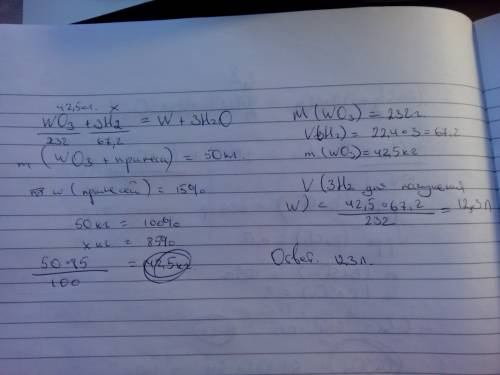 42,5кг. x
WO3 + 3H2 = W + 3H2O
232 67,2
m (WO3 + примеси) = 50 кг.
w (примесей) = 15%
50 кг = 100%
x кг = 85%
50·85 / 100 = 42,5 кг
M (WO3) = 232 г.
V(H2) = 22,4·3 = 67,2
m (WO3) = 42,5 кг
V (3H2 для получения
W) = 42,5·67,2 / 232 = 12,3 л
Ответ. 12,3 л.